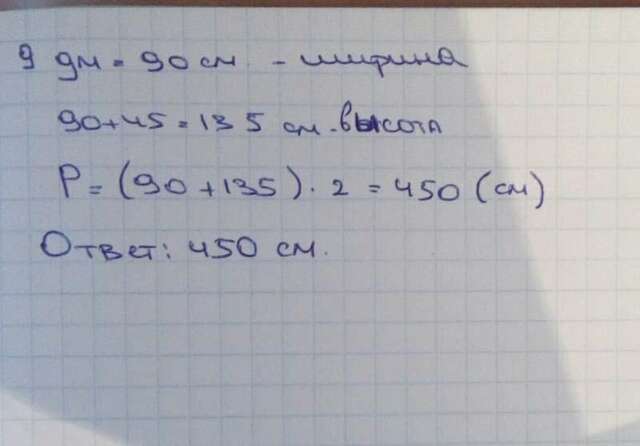 9 дм = 90 см - ширина
90+45=135 см - высота
P = (90+135) · 2 = 450 (см)
Ответ: 450 см.